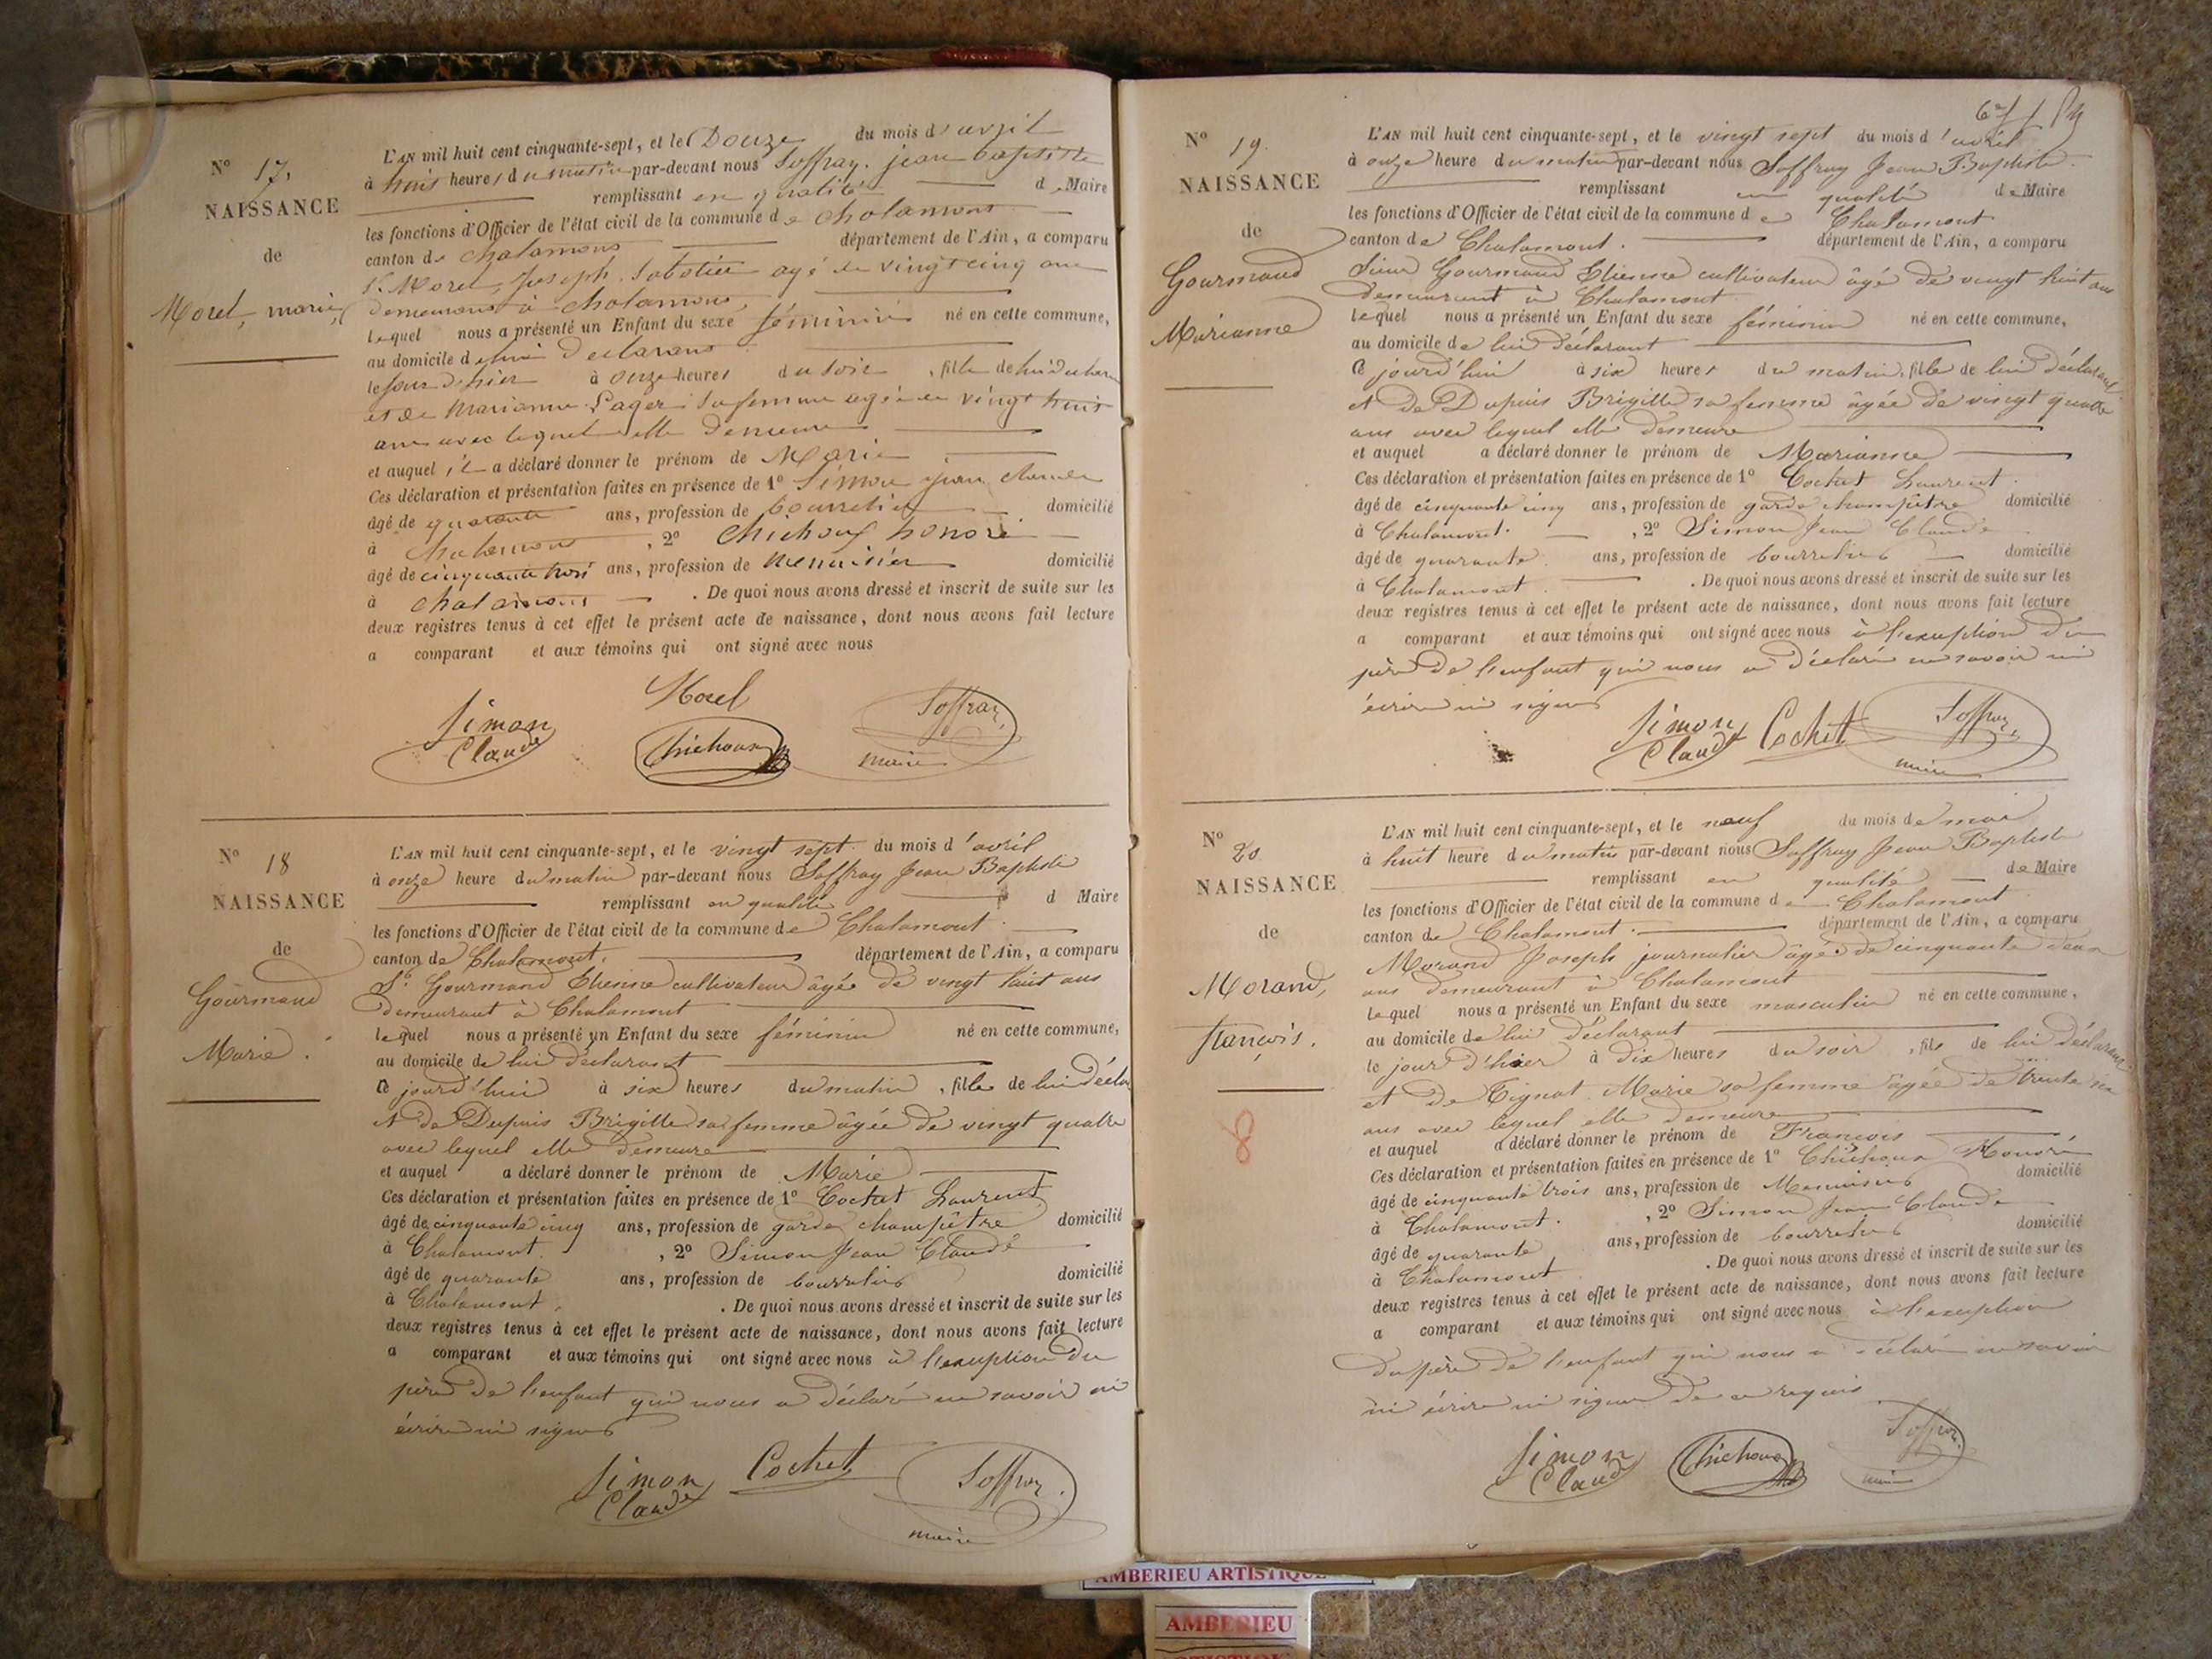 N° 17.
NAISSANCE
de
Morel, marie
L'AN mil huit cent cinquante-sept, et le Douze du mois d'avril
à huit heures du matin par-devant nous Soffray. jean baptiste
remplissant en qualité d Maire
les fonctions d'Officier de l'état civil de la commune de chalamont
canton de chalamont département de l'Ain, a comparu
Sr. Morel, joseph, Sabotier agé de vingt cinq ans
demeurant à chalamont,
lequel nous a présenté un Enfant du sexe féminin né en cette commune,
au domicile de lui Déclarant
le jour d'hier à onze heures du soir, fille de lui
et de Marianne sa femme agée de vingt huit
ans avec lequel elle Demeure
et auquel il a déclaré donner le prénom de Marie
Ces déclaration et présentation faites en présence de 1° Simon jean
âgé de quarante ans, profession de bourrelier domicilié
à chalamont, 2° Chichoux honoré
âgé de cinquante trois ans, profession de Menuisier domicilié
à chalamont. De quoi nous avons dressé et inscrit de suite sur les
deux registres tenus à cet effet le présent acte de naissance, dont nous avons fait lecture
a comparant et aux témoins qui ont signé avec nous
Morel
Simon Claude
Chichoux
Soffray
maire
N° 18
NAISSANCE
de
Gourmand
Marie.
L'AN mil huit cent cinquante-sept, et le vingt sept du mois d'avril
à onze heure du matin par-devant nous Soffray Jean Baptiste
remplissant en qualité d Maire
les fonctions d'Officier de l'état civil de la commune de Chalamont
canton de Chalamont. département de l'Ain, a comparu
Sr. Gourmand Etienne cultivateur âgée de vingt huit ans
demeurant à Chalamont
lequel nous a présenté un Enfant du sexe féminin né en cette commune,
au domicile de lui déclarant
Ce jourd'hui à six heures du matin, fille de lui
et de Dupuis Brigitte sa femme âgée de vingt quatre
avec lequel elle demeure
et auquel a déclaré donner le prénom de Marie
Ces déclaration et présentation faites en présence de 1° Cochet Laurent
âgé de cinquante cinq ans, profession de garde champêtre domicilié
à Chalamont, 2° Simon Jean Claude
âgé de quarante ans, profession de bourrelier domicilié
à Chalamont. De quoi nous avons dressé et inscrit de suite sur les
deux registres tenus à cet effet le présent acte de naissance, dont nous avons fait lecture
a comparant et aux témoins qui ont signé avec nous à l'exception du
père de l'enfant qui nous a déclaré ne savoir ni
écrire ni signer
Simon Claude
Cochet
Soffray
maire
N° 19.
NAISSANCE
de
Gourmand
Marianne
L'AN mil huit cent cinquante-sept, et le vingt sept du mois d'avril
à onze heure du matin par-devant nous Soffray Jean Baptiste
remplissant en qualité de Maire
les fonctions d'Officier de l'état civil de la commune de Chalamont
canton de Chalamont. département de l'Ain, a comparu
Sieur Gourmand Etienne cultivateur âgé de vingt huit ans
demeurant à Chalamont
lequel nous a présenté un Enfant du sexe féminin né en cette commune,
au domicile de lui déclarant
Ce jourd'hui à six heures du matin, fille de lui déclarant
et de Dupuis Brigitte sa femme âgée de vingt quatre
ans avec lequel elle demeure
et auquel a déclaré donner le prénom de Marianne
Ces déclaration et présentation faites en présence de 1° Cochet Laurent.
âgé de cinquante cinq ans, profession de garde champêtre domicilié
à Chalamont., 2° Simon Jean Claude
âgé de quarante ans, profession de bourrelier domicilié
à Chalamont. De quoi nous avons dressé et inscrit de suite sur les
deux registres tenus à cet effet le présent acte de naissance, dont nous avons fait lecture
a comparant et aux témoins qui ont signé avec nous à l'exception du
père de l'enfant qui nous a déclaré ne savoir ni
écrire ni signer
Simon Claude
Cochet
Soffray
maire
N° 20
NAISSANCE
de
Morand,
françois.
8
L'AN mil huit cent cinquante-sept, et le neuf du mois de mai
à huit heure du matin par-devant nous Soffray Jean Baptiste
remplissant en qualité de Maire
les fonctions d'Officier de l'état civil de la commune de Chalamont
canton de Chalamont. département de l'Ain, a comparu
Morand Joseph journalier âgé de cinquante deux
ans demeurant à Chalamont
lequel nous a présenté un Enfant du sexe masculin né en cette commune,
au domicile de lui déclarant
le jour d'hier à dix heures du soir, fils de lui déclarant
et de Tignat Marie sa femme âgée de trente
ans avec lequel elle demeure
et auquel a déclaré donner le prénom de François
Ces déclaration et présentation faites en présence de 1° Chichoux Honoré
âgé de cinquante trois ans, profession de Menuisier domicilié
à Chalamont., 2° Simon Jean Claude
âgé de quarante ans, profession de bourrelier domicilié
à Chalamont. De quoi nous avons dressé et inscrit de suite sur les
deux registres tenus à cet effet le présent acte de naissance, dont nous avons fait lecture
a comparant et aux témoins qui ont signé avec nous à l'exception
du père de l'enfant qui nous a déclaré ne savoir
ni écrire ni signer de ce requis
Simon Claude
Chichoux
Soffray
maire
AMBERIEU ARTISTIQUE
AMBERIEU